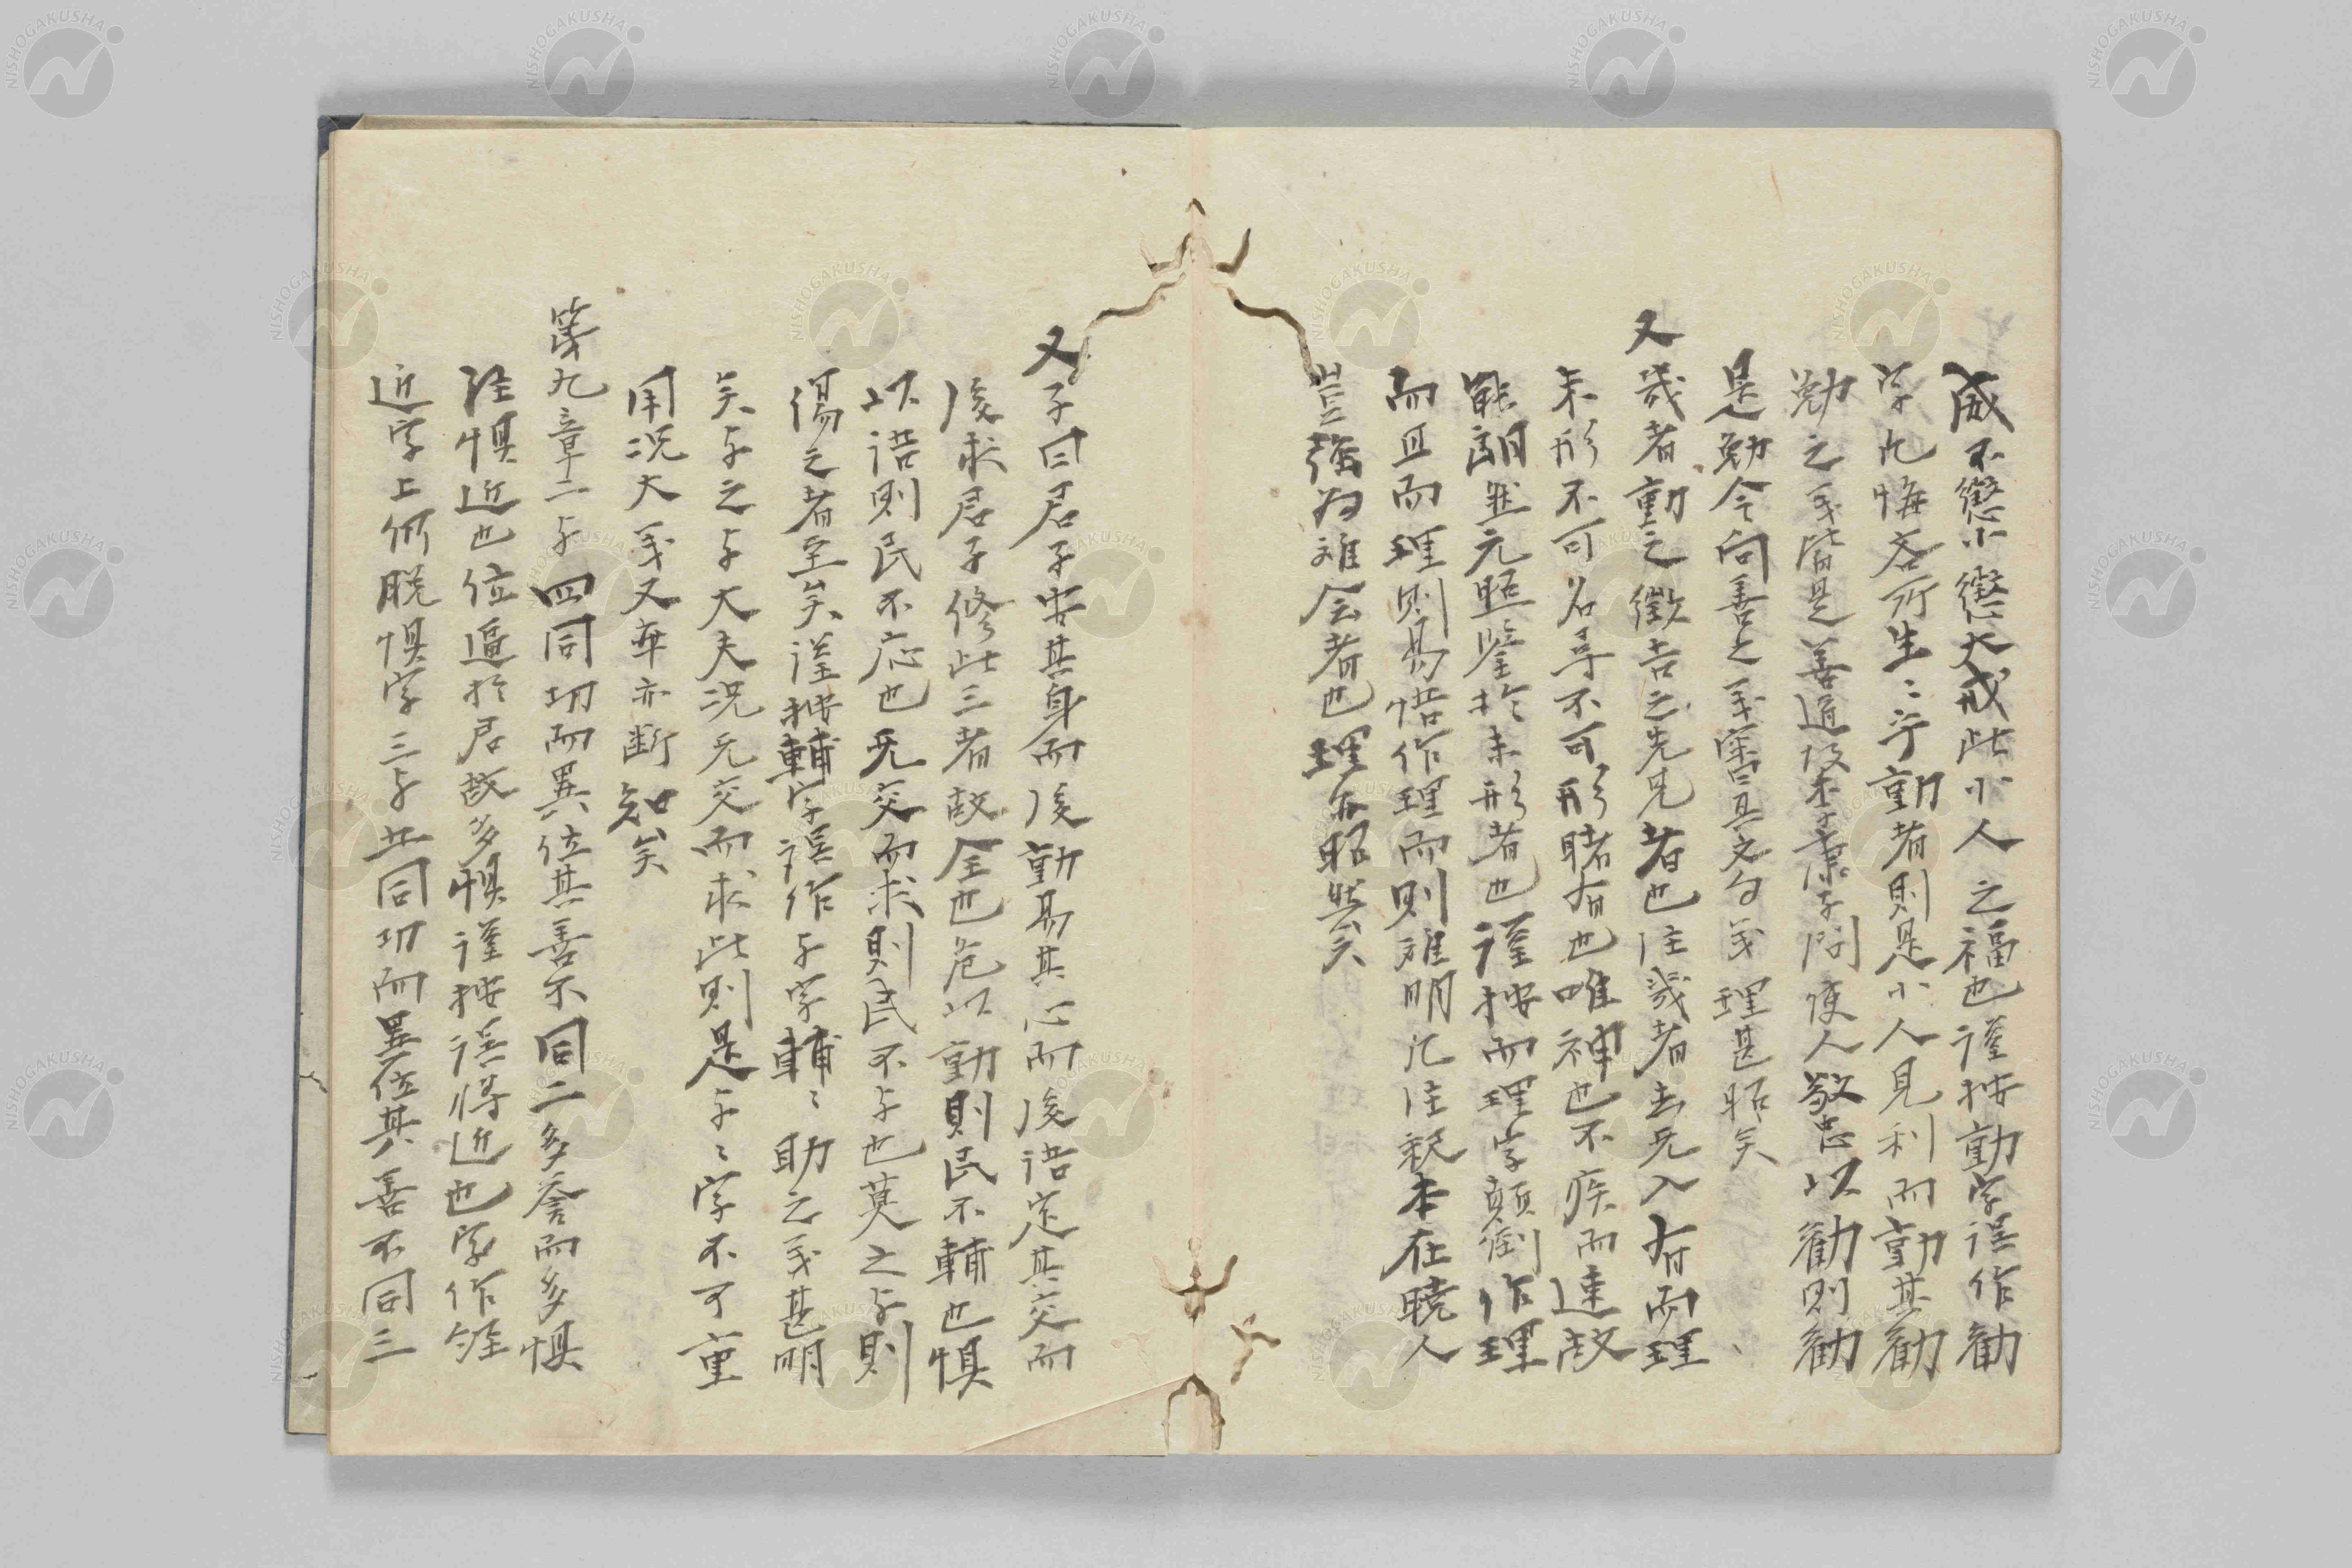 威不懲小懲大戒此小人之福也謹按動字誤作勧
字凡悔吝所生〻字動者則是小人見利而動其勧
勉之義皆是善道故季康子問使人敬忠以勧則勧
是勉令向善之義審且文句義理甚昭矣
又幾者動之微吉之先見者也注幾者去无入有而理
未形不可名尋不可形覩者也唯神也不疾而速故
能朗然元照鑒於未形者也謹按而理字顛倒作理
而且而理則易悟作理而則難明凡注親本在曉人
豈强為難会者也理亦昭然矣
又子曰君子安其身而後動易其心而後語定其交而
後求君子修此三者故全也危以動則民不輔也惧
以語則民不応也无交而求則民不与也莫之与則
傷之者至矣謹按輔字誤作与字輔〻助之義甚明
矣与之与大夫況无交而求此則是与〻字不可重
用況大義又弃亦断知矣
第九章二与四同功而異位其善不同二多誉而多惧
注惧近也位逼於君故多惧謹按誤将近也字作經
近字上仍脱惧字三与五同功而異位其善不同三
NISHOGAKUSHA